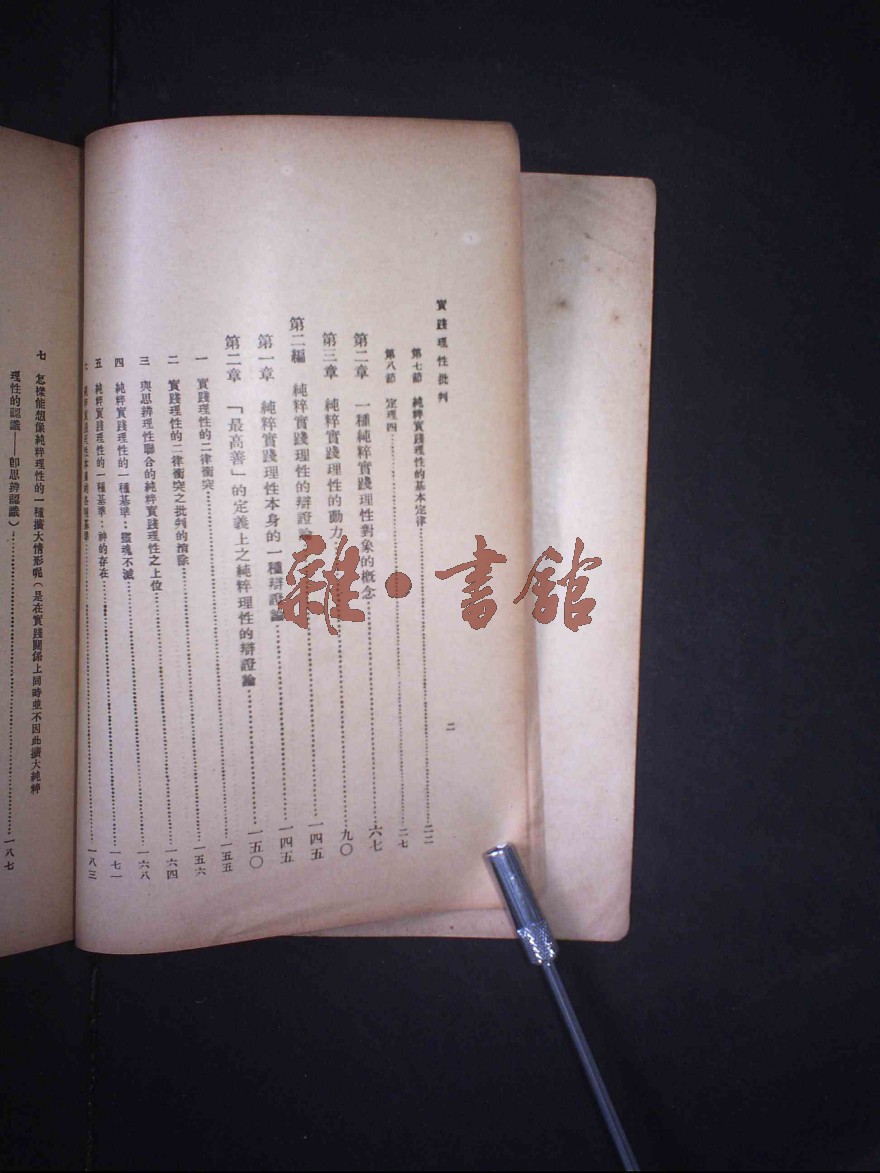 實踐理性批判
二
第七節 純粹實踐理性的基本定律……二二
第八節 定理四……二七
第二章 一種純粹實踐理性對象的概念……六七
第三章 純粹實踐理性的動力……九〇
第二編 純粹實踐理性的辯證論……一四五
第一章 純粹實踐理性本身的一種辯證論……一四五
第二章 「最高善」的定義上之純粹理性的辯證論……一五〇
一 實踐理性的二律衝突……一五五
二 實踐理性的二律衝突之批判的消除……一五六
三 與思辨理性聯合的純粹實踐理性之上位……一六四
四 純粹實踐理性的一種基準:靈魂不滅……一六八
五 純粹實踐理性的一種基準:神的存在……一七一
基準……一八三
七 怎樣能想像純粹理性的一種擴大情形呢(是在實踐關係上同時並不因此擴大純粹
理性的認識——卽思辨認識)……一八七
雜·書館